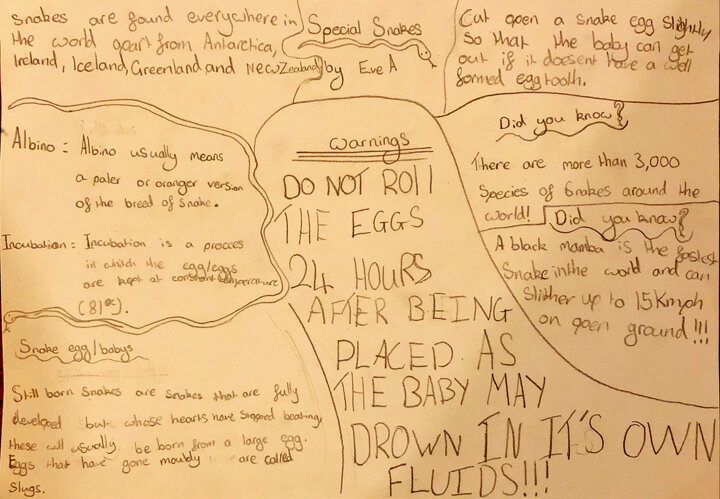 Snakes are found everywhere in
the world apart from Antarctica,
Ireland, Iceland, Greenland, and New Zealand
Special Snakes
by Eve A
Cut open a snake egg slightly
so that the baby can get
out if it doesent have a well
formed eggtooth.
Albino = Albino usually means
a paler or oranger version
of the breed of snake.
Incubation = Incubation is a procces
in which the egg/eggs
are kept at constant temperature
(81°c).
Warnings
DO NOT ROll
THE EGGS
24 HOURS
AFTER BEING
PLACED AS
THE BABY MAY
DROWN IN IT'S OWN
FLUIDS!!!
Did you know?
There are more than 3,000
Species of Snakes around the
world!
Did you know?
A black mamba is the fastest
Snake in the world and can
Slither up to 15Kmph
on open ground!!!
Snake egg/babys
Still born snakes are snakes that are fully
developed but whose hearts have stopped beating,
these will usually be born from a large egg.
Eggs that have gone mouldy are called
Slugs.